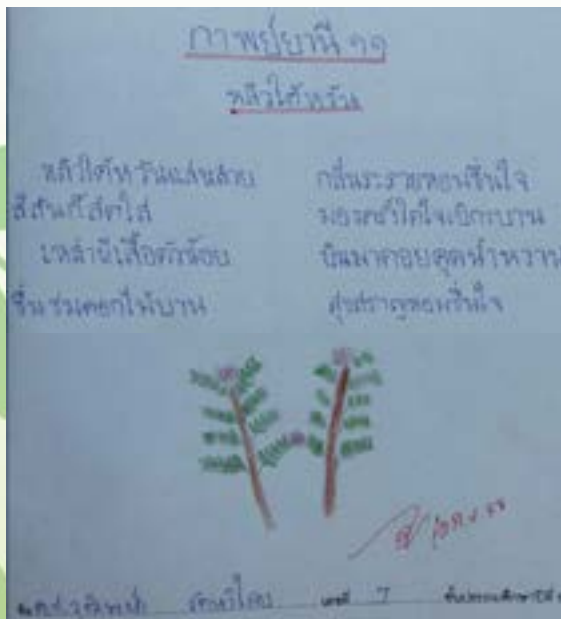 กาพย์ยานี ๑๑
หลิวไต้หวัน
หลิวไต้หวันแสนสวย กลิ่นระรวยหอมชื่นใจ
สีสันก็สดใส มองคราใดใจเบิกบาน
เหล่าผีเสื้อตัวน้อย บินมาคอยดูดน้ำหวาน
ชื่นชมดอกไม้บาน สุขสราญหอมชื่นใจ
ชื่อ เลขที่ 7 ชั้นประถมศึกษาปีที่